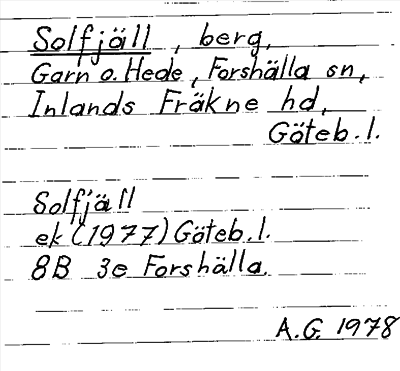 Solfjäll, berg,
Garn o. Hede, Forshälla sn,
Inlands Fräkne hd,
Göteb. l.
Solfjäll
ek (1977) Göteb. l.
8B 3e Forshälla.
A.G. 1978